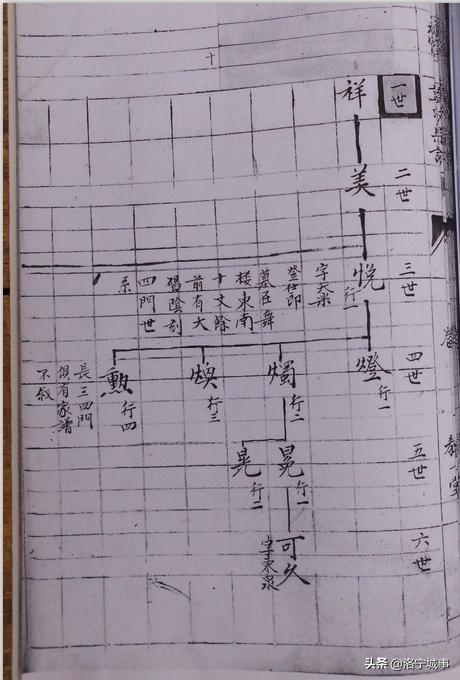 十
一世
祥
二世
美
三世
悅
行一
登仕郎
墓在舞
楼東南
十丈餘
前有大
碣陰刻
四門世
系
四世
燈
行一
燭
行二
煥
行三
勲
行四
長三四門
俱有家譜
不載
五世
冕
行一
晃
行二
六世
可久
字東泉
头条 @洛宁城事